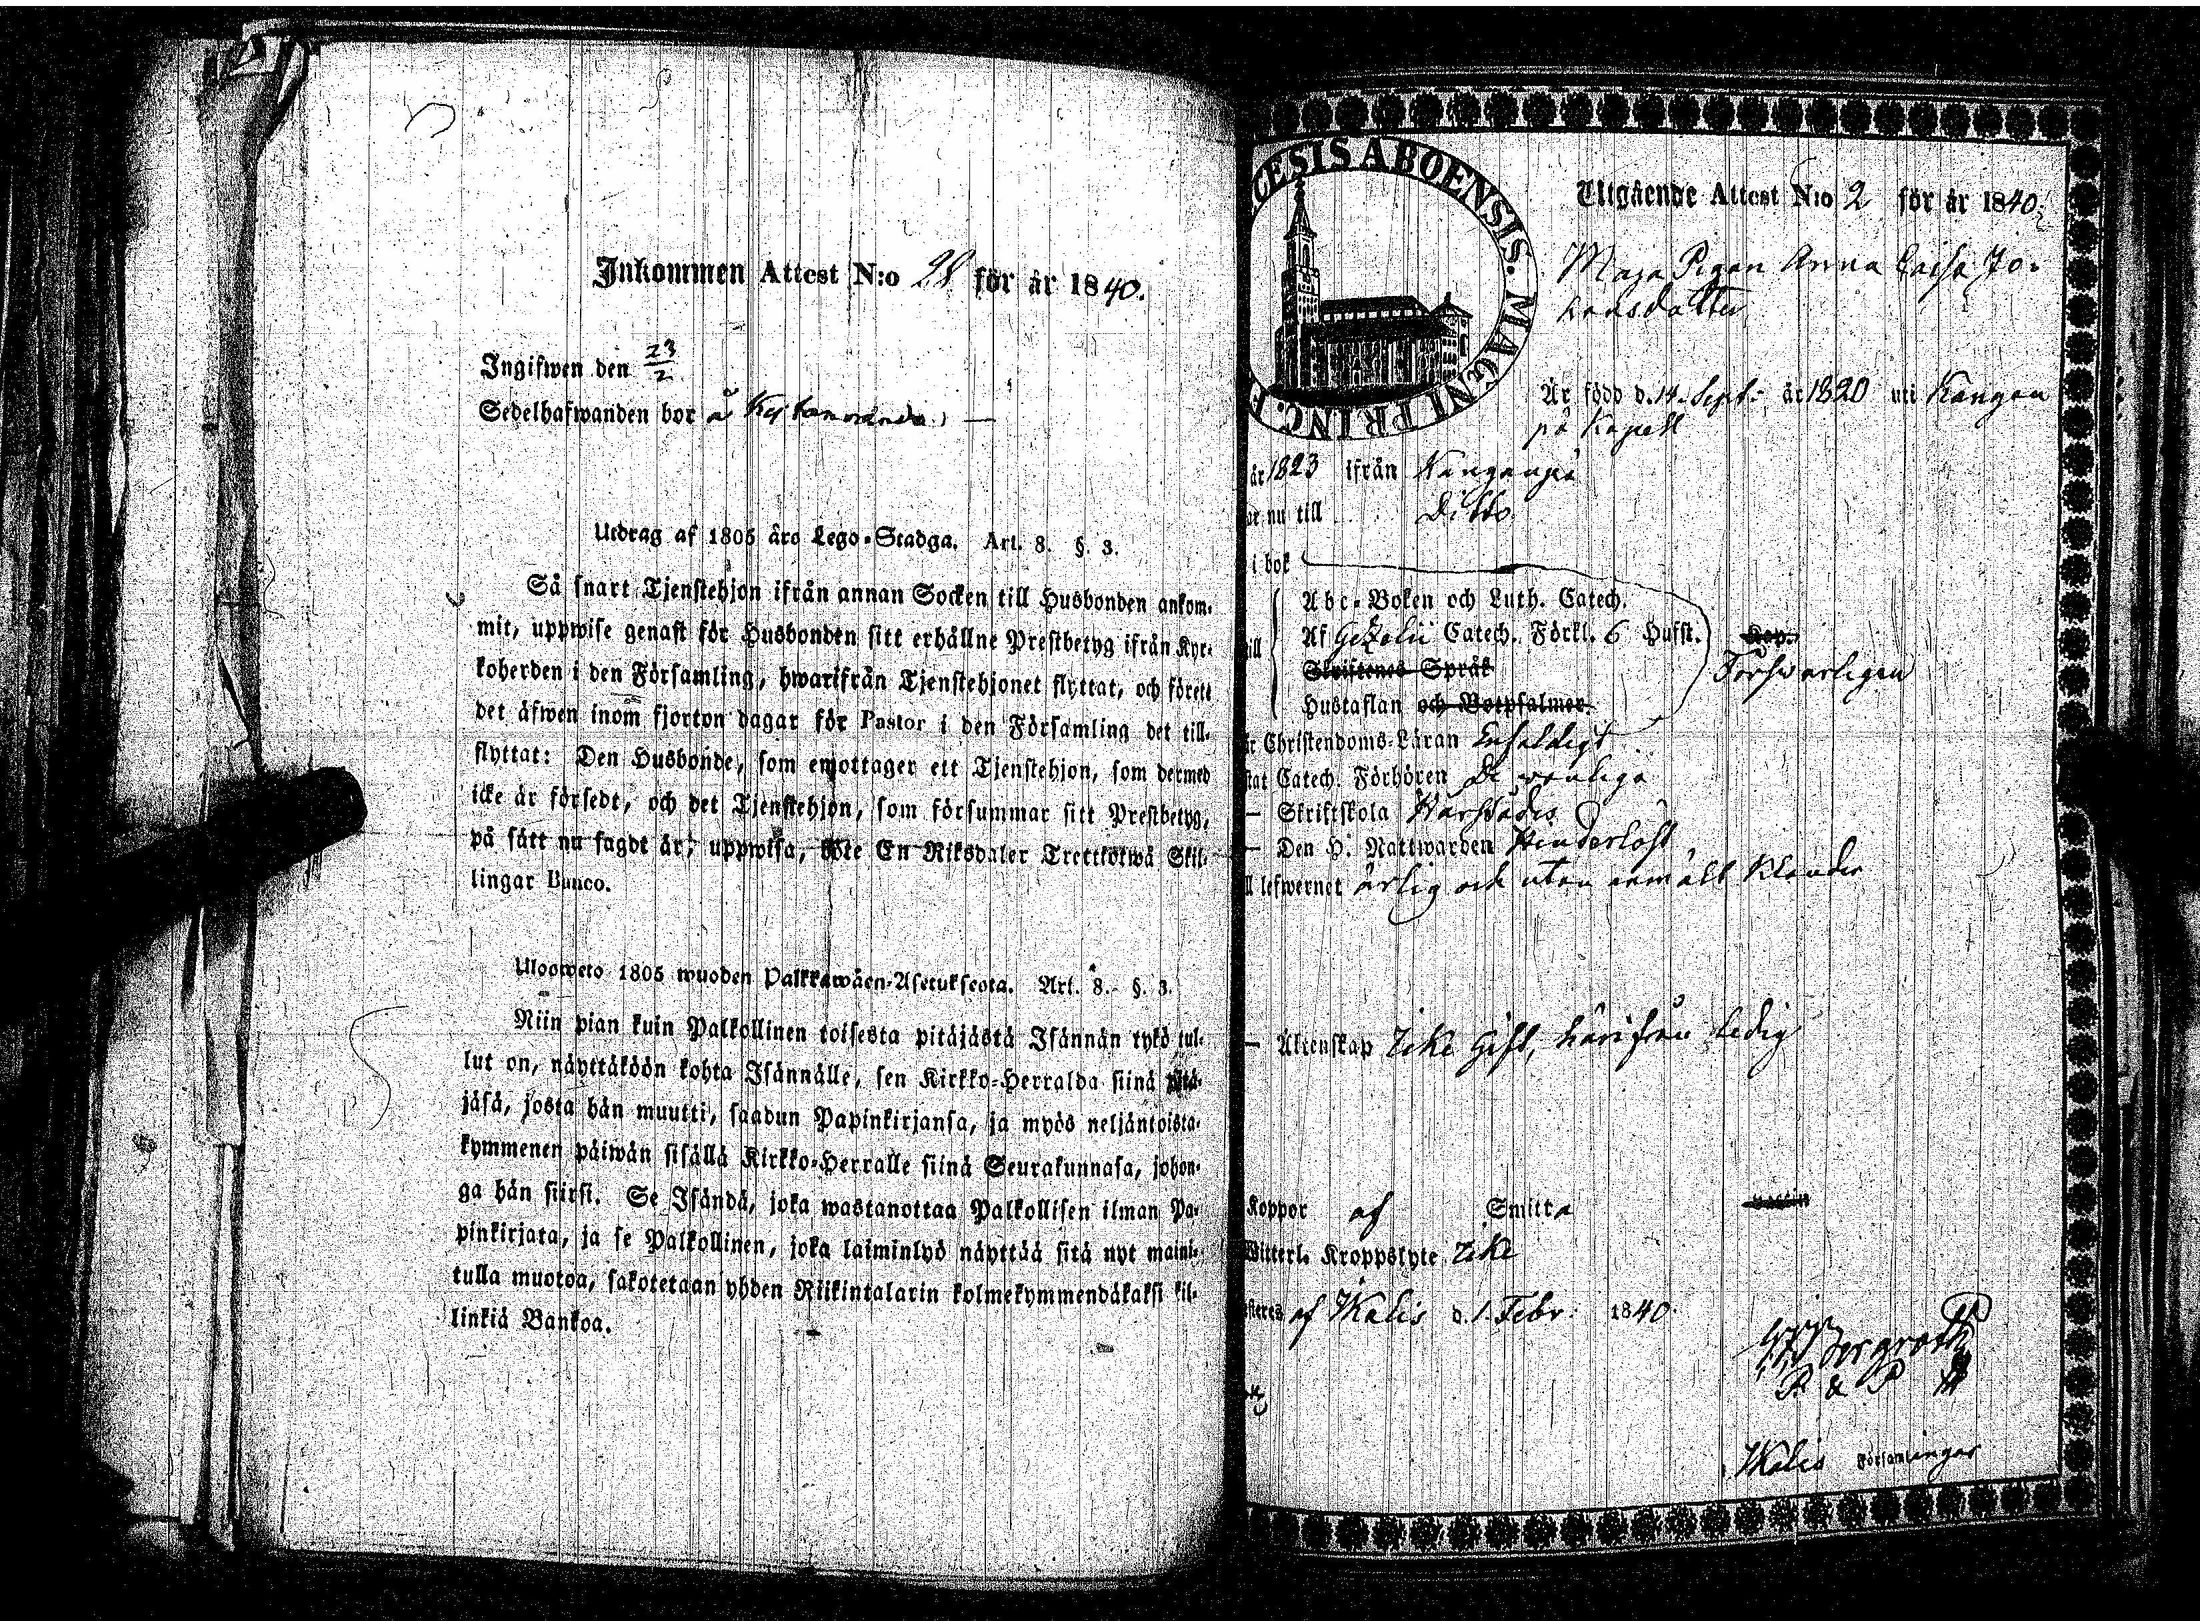 Inkommen Attest N:o 28 för år 1840.
Ingifwen den 23/2
Sedelhafwanden bor å
Utdrag af 1805 års Lego-Stadga. Art. 8. §. 3.
Så snart Tjenstehjon ifrån annan Socken till Husbonden ankom-
mit, uppwise genast för Husbonden sitt erhållne Prestbetyg ifrån Kyr-
koherden i den Församling, hwarifrån Tjenstehjonet flyttat, och förete
det äfwen inom fjorton dagar för Pastor i den Församling det till-
flyttat: Den Husbonde, som emottager ett Tjenstehjon, som dermed
icke är försedt, och det Tjenstehjon, som försummar sitt Prestbetyg,
på sätt nu sagdt är, uppwisa, böte En Riksdaler Trettiotwå Skil-
lingar Banco.
Uloosweto 1805 wuoden Palkkawäen-Asetuksesta. Art. 8. §. 3.
Niin pian kuin Palkollinen toisesta pitäjästä Isännän tykö tul-
lut on, näyttäköön kohta Isännälle, sen Kirkko-Herralda siinä pitä-
jäsä, josta hän muutti, saadun Papinkirjansa, ja myös neljäntoista-
kymmenen päiwän sisällä Kirkko-Herralle siinä Seurakunnasa, johon-
ga hän siirsi. Se Isändä, joka wastanottaa Palkollisen ilman Pa-
pinkirjata, ja se Palkollinen, joka laiminlyö näyttää sitä nyt maini-
tulla muotoa, sakotetaan yhden Riikintalarin kolmekymmendäkaksi kil-
linkiä Bankoa.
CESIS ABOENSIS. MAGNI PRINC. F
Utgående Attest N:o 2 för år 1840.
Pigan Anna Caisa Jo-
hansdotter
Är född d. 14. Sept. år 1820 uti Kangan
på Kapell
år 1823 ifrån Kanganpä
ar nu till Ditto
i bok
Abc-Boken och Luth. Catech.
Af Gezelii Catech. Förkl. 6 Hufst.
Skriftenes Språk
Hustaflan och Botpsalmer.
Förswarligen
r Christendoms-Läran Enfaldigt
tat Catech. Förhören De wanliga
— Skriftskola
— Den H. Nattwarden Hinderlöst
ll lefwernet ärlig och utan anmält klander
— Äktenskap Icke Gift, härifrån ledig
Koppor af Smitta
Witterl. Kroppslyte Icke
steras af Ikalis d. 1. Febr. 1840.
Bergroth
P & P
Ikalis Församlingar